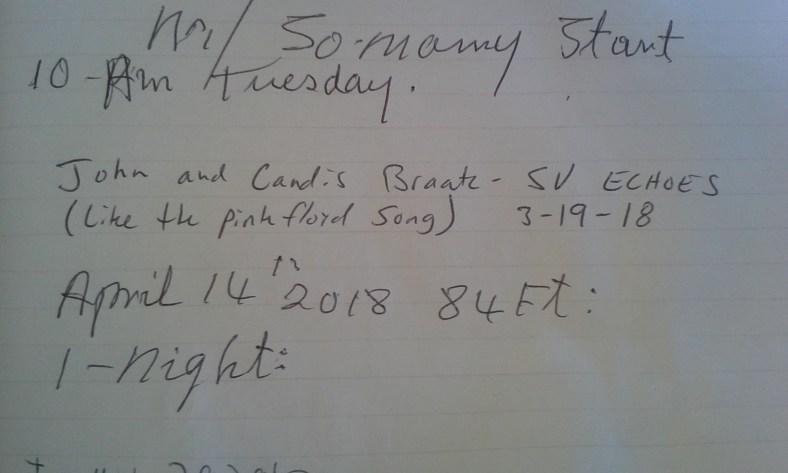 So-many Start
10-Am Tuesday.
John and Candis Braatz - SV ECHOES
(Like the pink floyd song) 3-19-18
April 14th 2018 84Ft:
1-night: